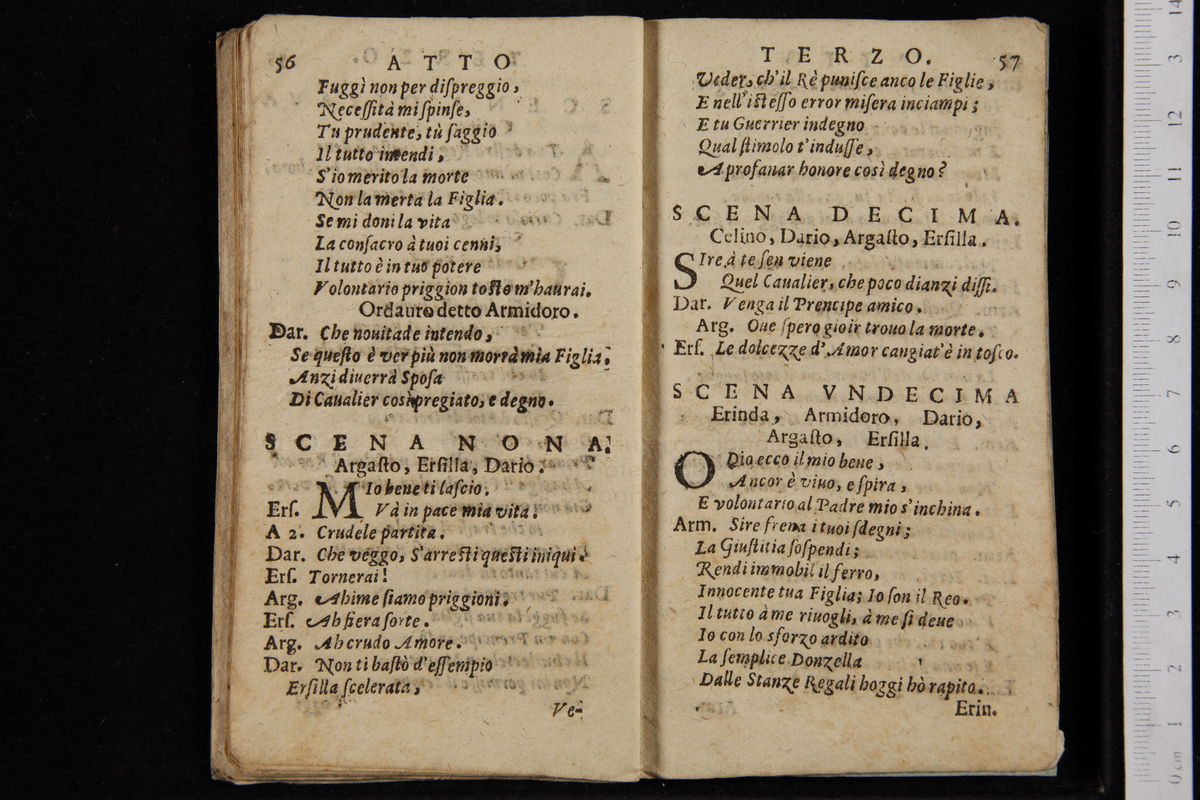 56 ATTO
Fuggì non per dispreggio,
Necessità mi spinse,
Tu prudente, tù saggio
Il tutto intendi,
S'io merito la morte
Non la merta la Figlia.
Se mi doni la vita
La consacro à tuoi cenni,
Il tutto è in tuo potere
Volontario priggion tosto m'haurai.
Ordauro detto Armidoro.
Dar. Che nouitade intendo,
Se questo è ver più non morrà mia Figlia:
Anzi diuerrà Sposa
Di Caualier così pregiato, e degno.
SCENA NONA.
Argasto, Ersilla, Dario.
MIo bene ti lascio.
Ers. Và in pace mia vita.
A 2. Crudele partita.
Dar. Che veggo, S'arresti questi iniqui.
Ers. Tornerai!
Arg. Ahime siamo priggioni.
Ers. Ah fiera sorte.
Arg. Ah crudo Amore.
Dar. Non ti bastò d'essempio
Ersilla scelerata,
Ve-
TERZO. 57
Veder, ch'il Rè punisce anco le Figlie,
E nell'istesso error misera inciampi;
E tu Guerrier indegno
Qual stimolo t'indusse,
A profanar honore così degno?
SCENA DECIMA.
Celino, Dario, Argasto, Ersilla.
SIre à te sen viene
Quel Caualier, che poco dianzi dissi.
Dar. Venga il Prencipe amico.
Arg. Oue spero gioir trouo la morte.
Ers. Le dolcezze d'Amor cangiat'è in tosco.
SCENA VNDECIMA
Erinda, Armidoro, Dario,
Argasto, Ersilla.
O Dio ecco il mio bene,
Ancor è viuo, e spira,
E volontario al Padre mio s'inchina.
Arm. Sire frena i tuoi sdegni;
La Giustitia sospendi;
Rendi immobil il ferro,
Innocente tua Figlia; Io son il Reo.
Il tutto à me riuogli, à me si deue
Io con lo sforzo ardito
La semplice Donzella
Dalle Stanze Regali hoggi hò rapito.
Erin.
0 cm 1 2 3 4 5 6 7 8 9 10 11 12 13 14